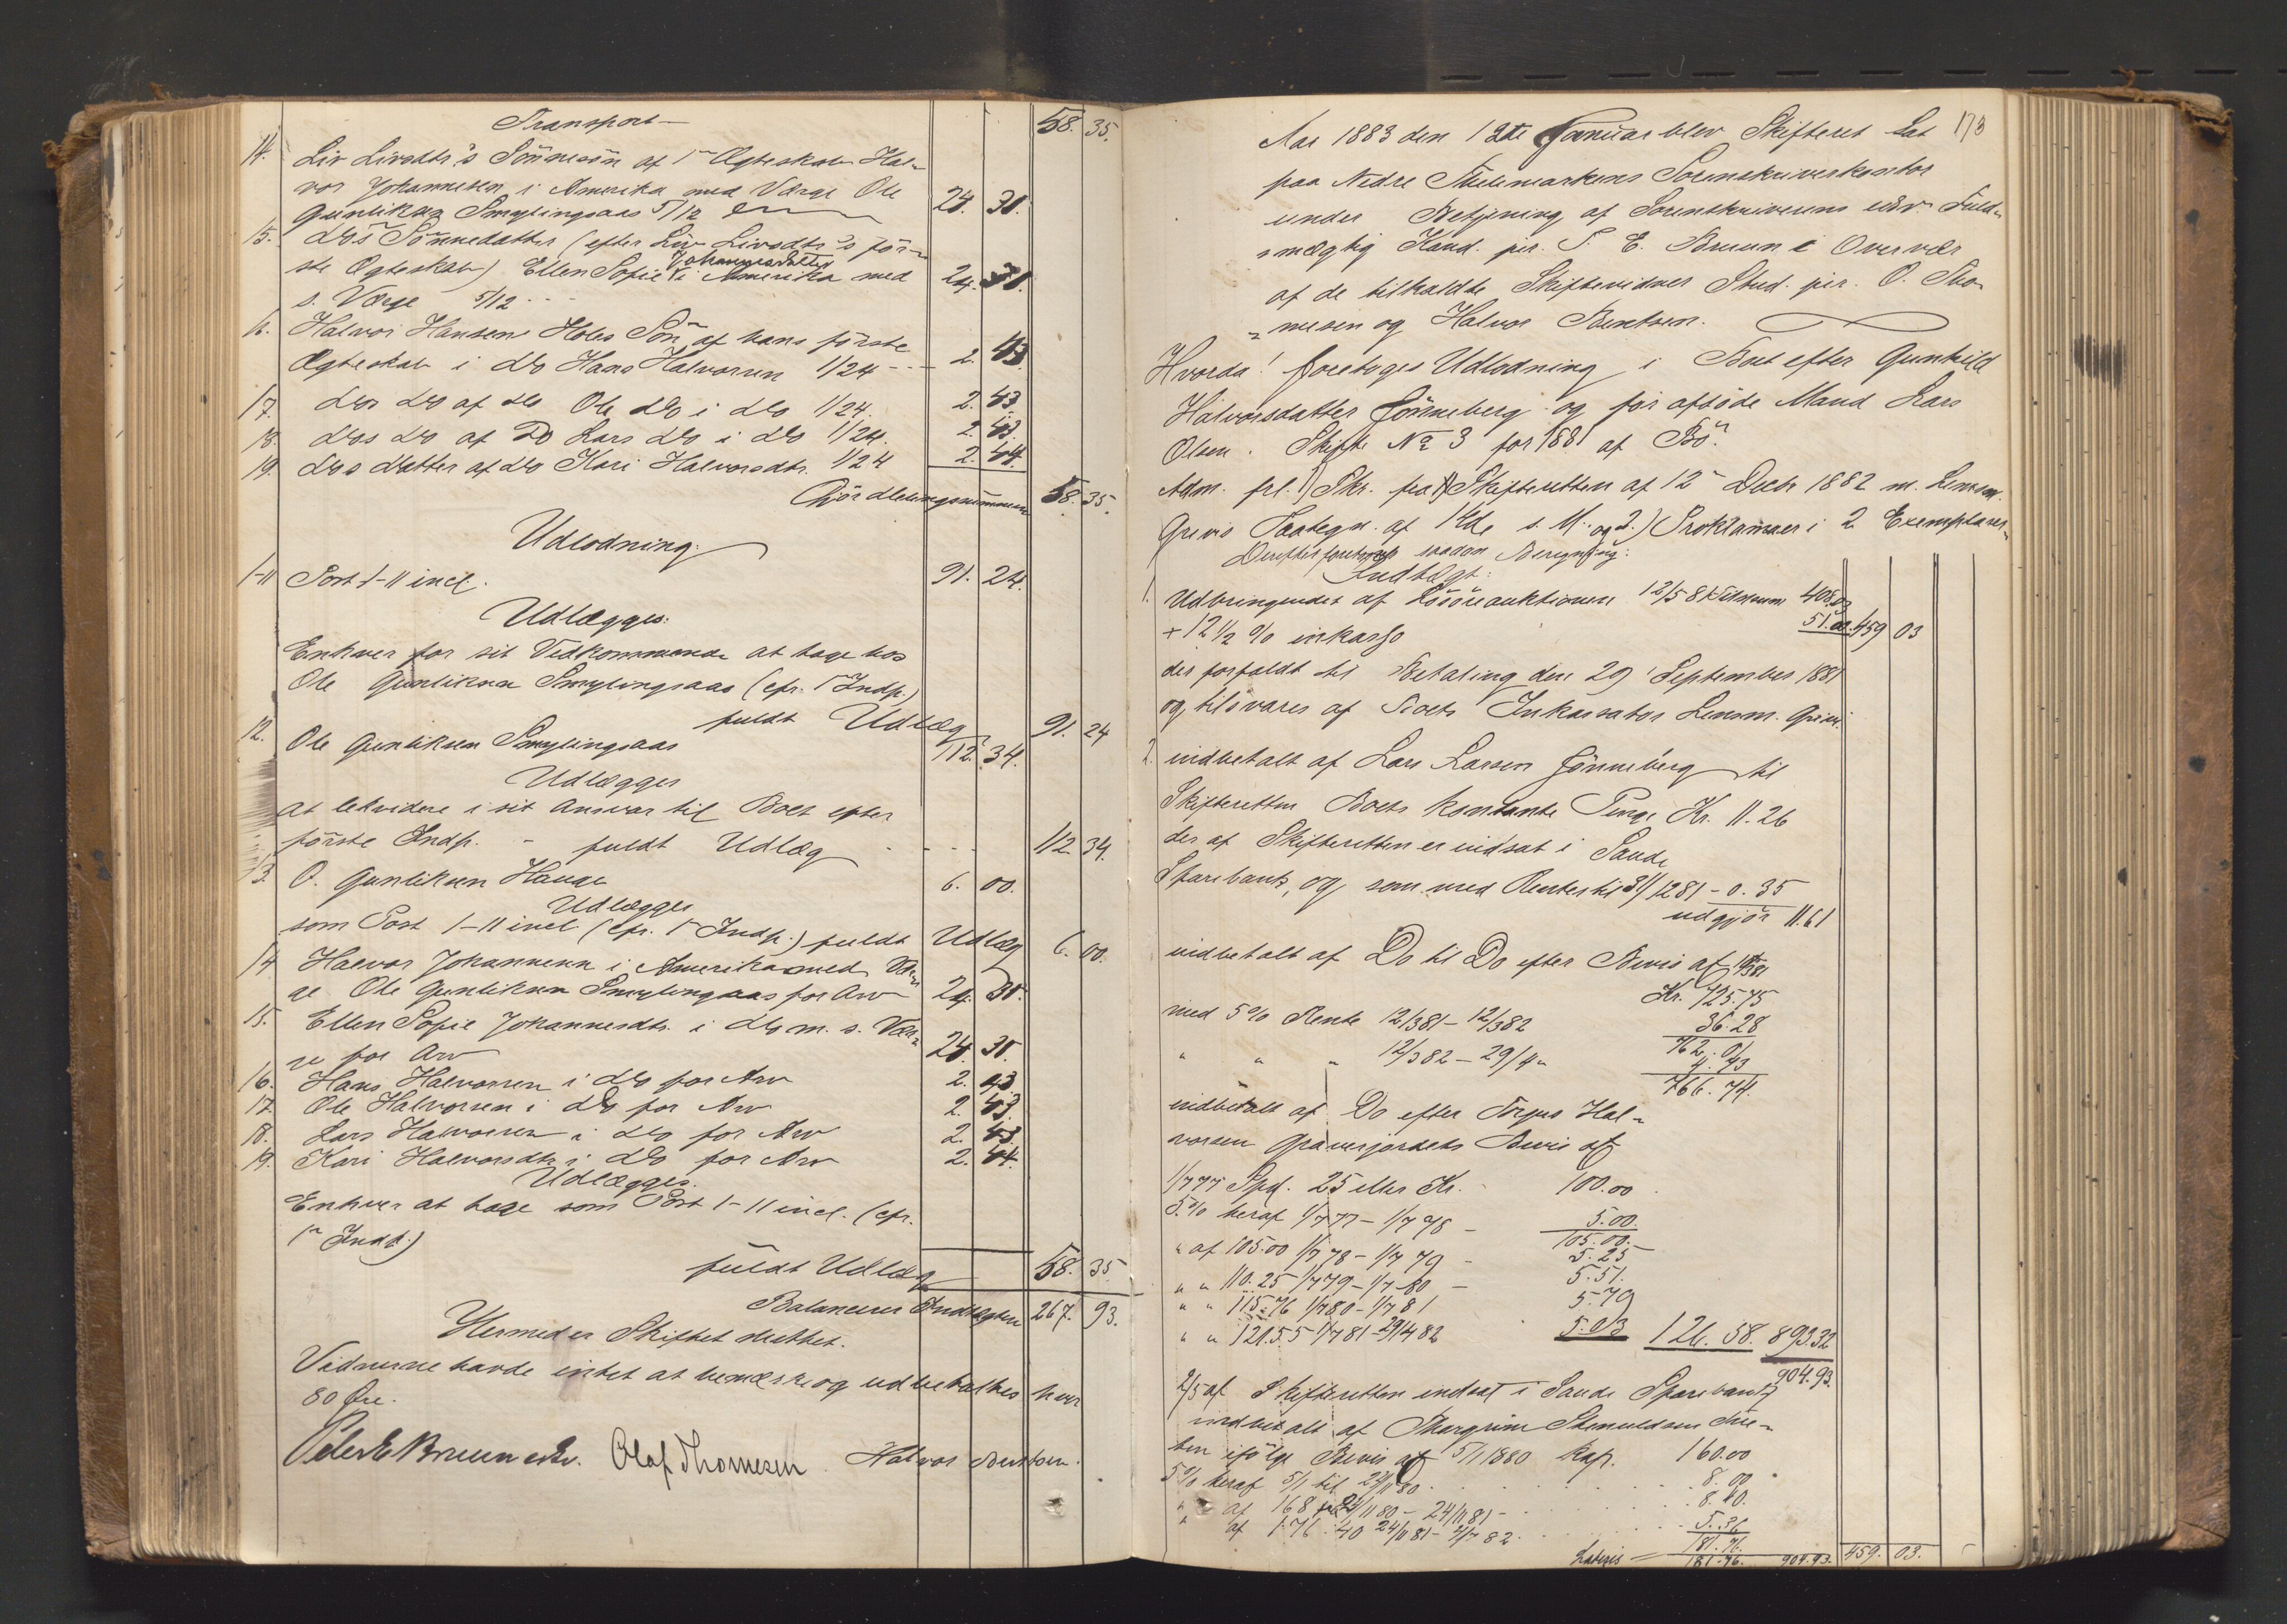 Transport 58. 35.
14. Liv Livsdtr's Sönnesön af 1ste Ægteskab Hal-
vor Johannesen i Amerika med Værge Ole
Gunliksen Smylingsaas 5/12 24. 30.
15. Dos Sönnedatter (efter Liv Livsdtr's för-
ste Ægteskab) Ellen Sofie Johannesdatter i Amerika med
s. Værge 5/12 24. 30.
16. Halvor Hansen Holes Sön af hans förste
Ægteskab i Do Hans Halvorsen 1/24 2. 43.
17. Dos Do af Do Ole Do i Do 1/24. 2. 43.
18. Dos Do af Do Lars Do i Do 1/24. 2. 43.
19. Dos Datter af Do Kari Halvorsdtr. 1/24 2. 44.
Gjör 58. 35.
Udlodning.
1-11 Post 1-11 incl. 91. 24.
Udlægges:
Enhver for sit Vedkommende at tage hos
Ole Gunliksen Smylingsaas (cfr. 1ste Indp.)
fuldt Udlæg 91. 24
12. Ole Gunliksen Smylingsaas 112. 34.
Udlægges
at lekvidere i sit Ansvar til Boet efter
förste Indp. - fuldt Udlæg 112. 34.
13. O. Gunliksen Hauge 6. 00.
Udlægges
som Post 1-11 incl. (cfr. 1ste Indp.) fuldt Udlæg 6. 00.
14 Halvor Johannesen i Amerika med Vær-
ge Ole Gunliksen Smylingsaas for Arv 24. 30.
15. Ellen Sofie Johannesdtr. i Do m. s. Vær-
ge for Arv 24. 30.
16. Hans Halvorsen i Do for Arv 2. 43.
17. Ole Halvorsen i Do for Arv 2. 43.
18. Lars Halvorsen i Do for Arv 2. 43.
19. Kari Halvorsdtr i Do for Arv 2. 44.
Udlægges.
Enhver at tage som Post 1-11 incl. (cfr.
1ste Indp.)
fuldt Udlæg 58. 35.
Balancerer Indtægten 267. 93.
Hermed er Skiftet sluttet.
Vidnerne havde intet at bemærke og udbetaltes hver
80 Öre.
Peter E Bruun Olaf Thomesen Halvor Bentsen.
173
Aar 1883 den 12te Januar blev Skifteret sat
paa Nedre Thelemarkens Sorenskriverkontor
under Betjening af Sorenskriverens edsv. Fuld-
mægtig Kand. jur. P. E. Bruun i Overvær
af de tilkaldte Skiftevidner Stud. jur. O. Tho-
mesen og Halvor Bentsen.
Hvorda! foretoges Udlodning i Boet efter Gunhild
Halvorsdatter Jönneberg og för afdöde Mand Lars
Olsen. Skifte No 3 for 1881 af Bö.
Adm. frl. 1) Skr. fra Skifteretten af 12te Decbr 1882 m. Lensm.
Grivis Paategn. af 14de s. M. og 2.) Proklamaer i 2 Exemplarer
Derefter foretoges saadan Beregning:
Indtægt:
1. Udbringendet af Lösöreauktionen 12/5 81 408.03
+ 12 1/2 % inkasso 51.00. 459 03
der forfaldt til Betaling den 29 September 1881
og tilsvares af Boets Inkassator Lensm. Grivi.
2. indbetalt af Lars Larsen Jönneberg til
Skifteretten Boets kontante Penge Kr. 11.26
der af Skifteretten er indsat i Saude
Sparebank, og som med Renter til 31/12 81 - 0.35
udgjör 11.61
indbetalt af Do til Do efter Bevis af 12/3 81
Kr. 725.75
med 5% Rente 12/3 81 - 12/3 82 36.28
762.03
" " " 12/3 82 - 29/4 "
766.74.
indbetalt af Do efter Torjus Hal-
vorsen Graverjordets Bevis af
1/7 77 Spd. 25 eller Kr. 100.00
5% heraf 1/7 77 - 1/7 78 - 5.00.
105.00.
" af 105.00 1/7 78 - 1/7 79 - 5.25
" " 110.25 1/7 79 - 1/7 80 - 5.51.
" " 115.76 1/7 80 - 1/7 81 5.79
" " 121.55 1/7 81 - 29/4 82 5.03 126.58. 893.32
904.93.
2/5 af Skifteretten indsat i Saude Sparebank
indbetalt af Thorgrim
ifölge Bevis af 5/1 1880 Kap. 160.00
5% heraf 5/1 til 24/11 80 8.00
" af 168 24/11 80 - 24/11 81 - 8.40.
" af 176.40 24/11 81 - 2/7 82 5.36
181.76.
Lateris 181.76. 904.93. 459. 03.